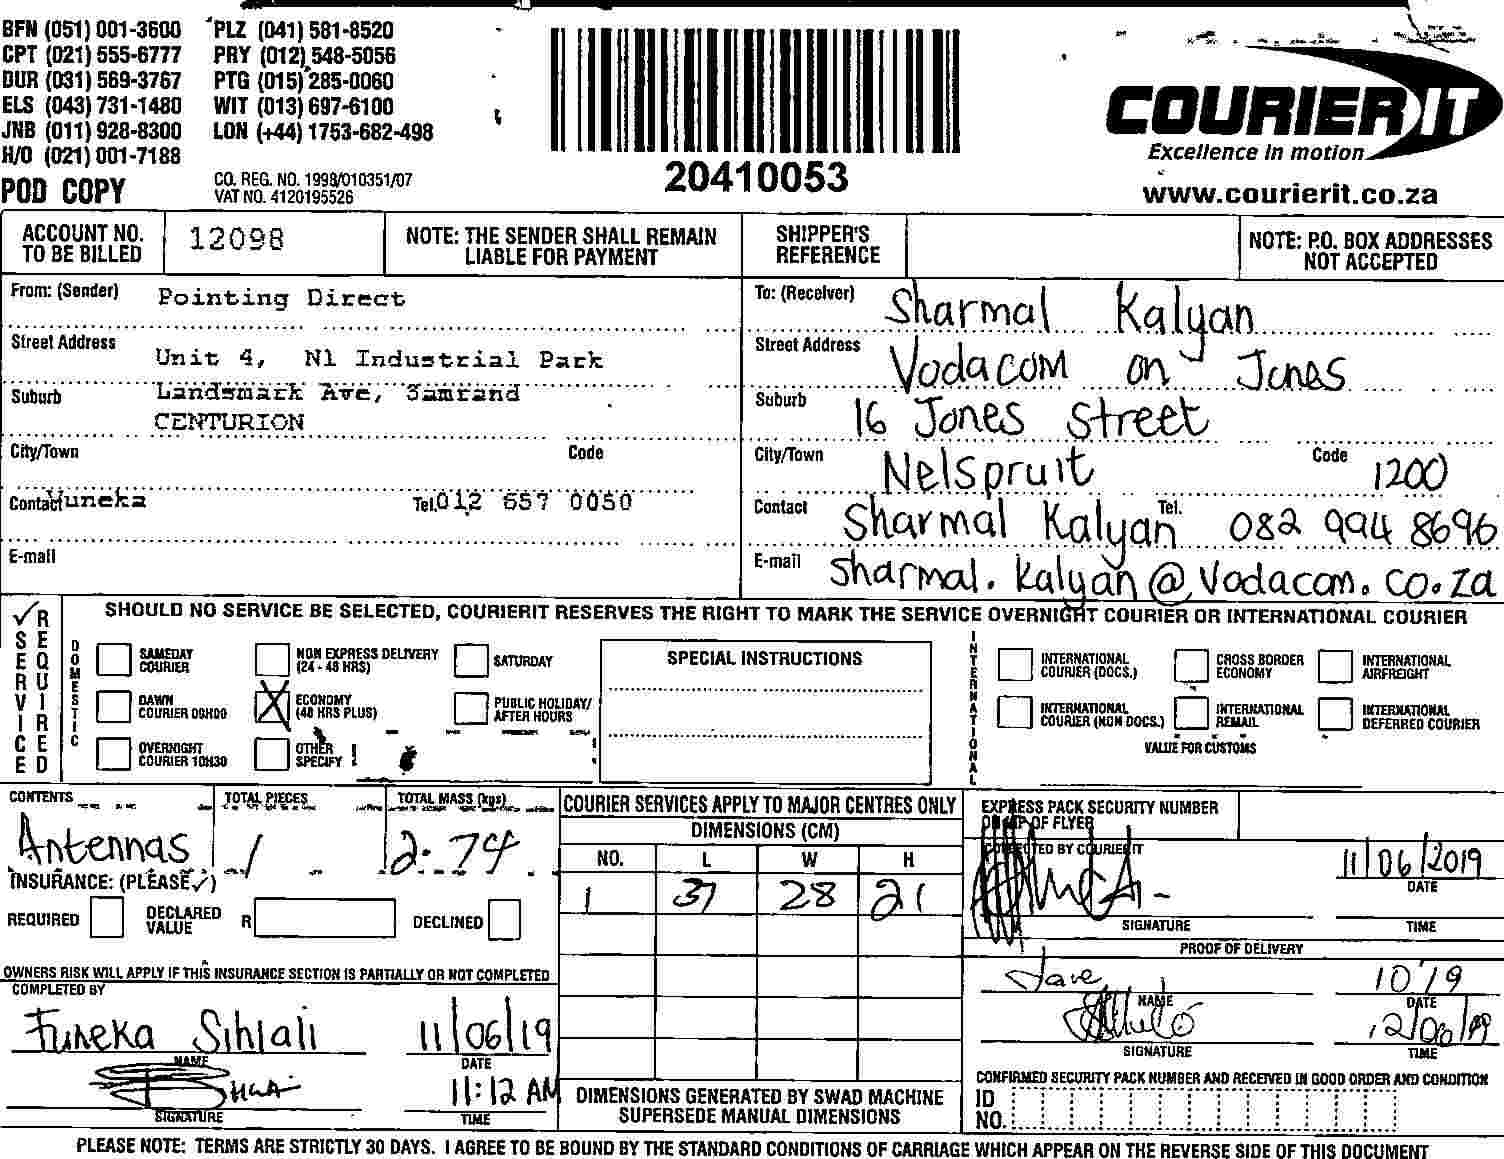 BFN (051) 001-3600 PLZ (041) 581-8520
CPT (021) 555-6777 PRY (012) 548-5056
DUR (031) 569-3767 PTG (015) 285-0060
ELS (043) 731-1480 WIT (013) 697-6100
JNB (011) 928-8300 LON (+44) 1753-682-498
H/O (021) 001-7188
POD COPY
CO. REG. NO. 1998/010351/07
VAT NO. 4120195526
20410053
COURIER IT
Excellence in motion
www.courierit.co.za
ACCOUNT NO. TO BE BILLED 12098
NOTE: THE SENDER SHALL REMAIN LIABLE FOR PAYMENT
SHIPPER'S REFERENCE
NOTE: P.O. BOX ADDRESSES NOT ACCEPTED
From: (Sender) Pointing Direct
Street Address Unit 4, N1 Industrial Park
Suburb Landsmark Ave, Samrand
CENTURION
City/Town Code
Contact Funeka Tel. 012 657 0050
E-mail
To: (Receiver) Sharmal Kalyan
Street Address Vodacom on Jones
Suburb 16 Jones Street
City/Town Nelspruit Code 1200
Contact Sharmal Kalyan Tel. 082 994 8696
E-mail sharmal.kalyan@vodacom.co.za
✓ SERVICE REQUIRED
SHOULD NO SERVICE BE SELECTED, COURIERIT RESERVES THE RIGHT TO MARK THE SERVICE OVERNIGHT COURIER OR INTERNATIONAL COURIER
DOMESTIC
SAMEDAY COURIER
NON EXPRESS DELIVERY (24 - 48 HRS)
SATURDAY
DAWN COURIER 09H00
X ECONOMY (48 HRS PLUS)
PUBLIC HOLIDAY/ AFTER HOURS
OVERNIGHT COURIER 10H30
OTHER SPECIFY
SPECIAL INSTRUCTIONS
INTERNATIONAL
INTERNATIONAL COURIER (DOCS.)
CROSS BORDER ECONOMY
INTERNATIONAL AIRFREIGHT
INTERNATIONAL COURIER (NON DOCS.)
INTERNATIONAL REMAIL
INTERNATIONAL DEFERRED COURIER
VALUE FOR CUSTOMS
CONTENTS TOTAL PIECES TOTAL MASS (kgs)
Antennas 1 2.74
INSURANCE: (PLEASE ✓)
REQUIRED DECLARED VALUE R DECLINED
OWNERS RISK WILL APPLY IF THIS INSURANCE SECTION IS PARTIALLY OR NOT COMPLETED
COMPLETED BY
Funeka Sihlali 11/06/19
NAME DATE
11:12 AM
SIGNATURE TIME
COURIER SERVICES APPLY TO MAJOR CENTRES ONLY
DIMENSIONS (CM)
NO. L W H
1 37 28 21
DIMENSIONS GENERATED BY SWAD MACHINE
SUPERSEDE MANUAL DIMENSIONS
EXPRESS PACK SECURITY NUMBER
ON TOP OF FLYER
COLLECTED BY COURIERIT
11/06/2019
DATE
SIGNATURE TIME
PROOF OF DELIVERY
10 19
NAME DATE
12/06/19
SIGNATURE TIME
CONFIRMED SECURITY PACK NUMBER AND RECEIVED IN GOOD ORDER AND CONDITION
ID NO.
PLEASE NOTE: TERMS ARE STRICTLY 30 DAYS. I AGREE TO BE BOUND BY THE STANDARD CONDITIONS OF CARRIAGE WHICH APPEAR ON THE REVERSE SIDE OF THIS DOCUMENT